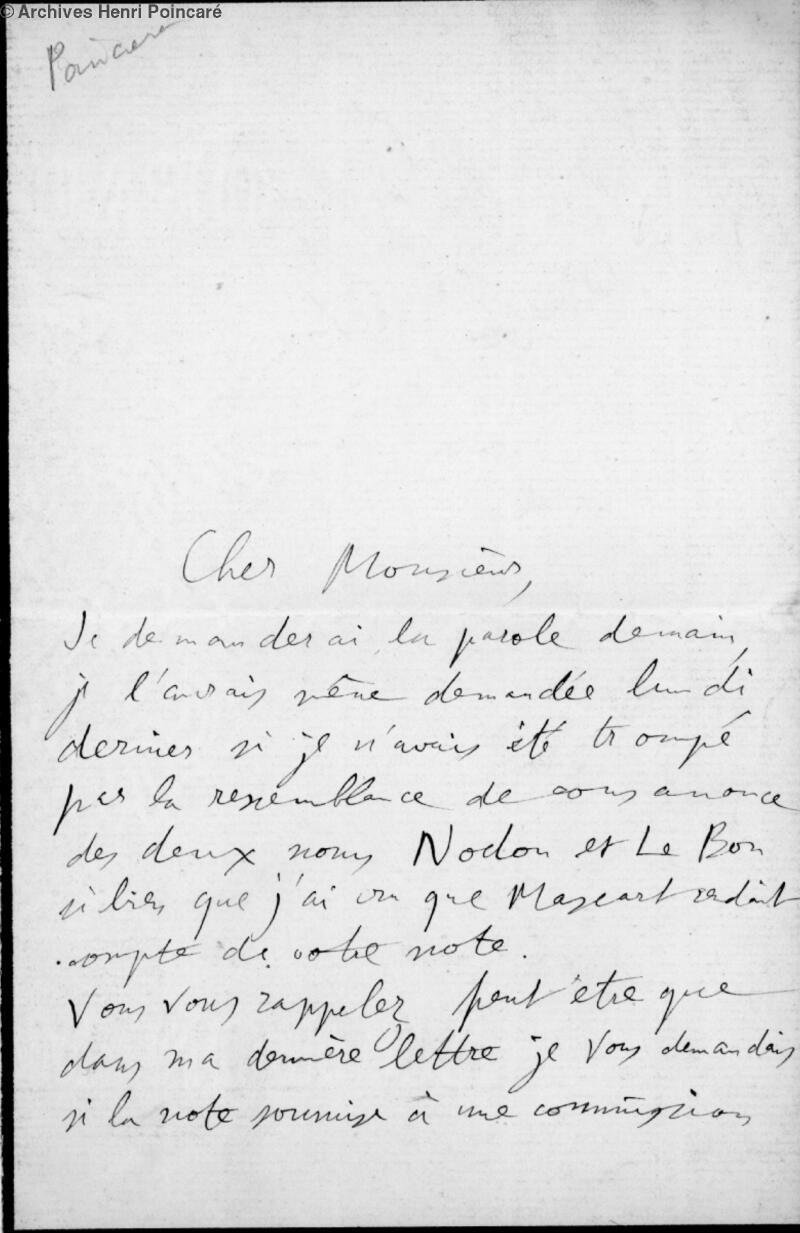 © Archives Henri Poincaré
Poincaré
Cher Monsieur,
Je demanderai la parole demain,
je l'aurais même demandée lundi
dernier si je n'avais été trompé
par la ressemblance de consonance
des deux noms Nodon et Le Bon
si bien que j'ai cru que Mascart rendait
compte de votre note.
Vous vous rappelez peut être que
dans ma dernière lettre je vous demandais
si la note soumise à une commission